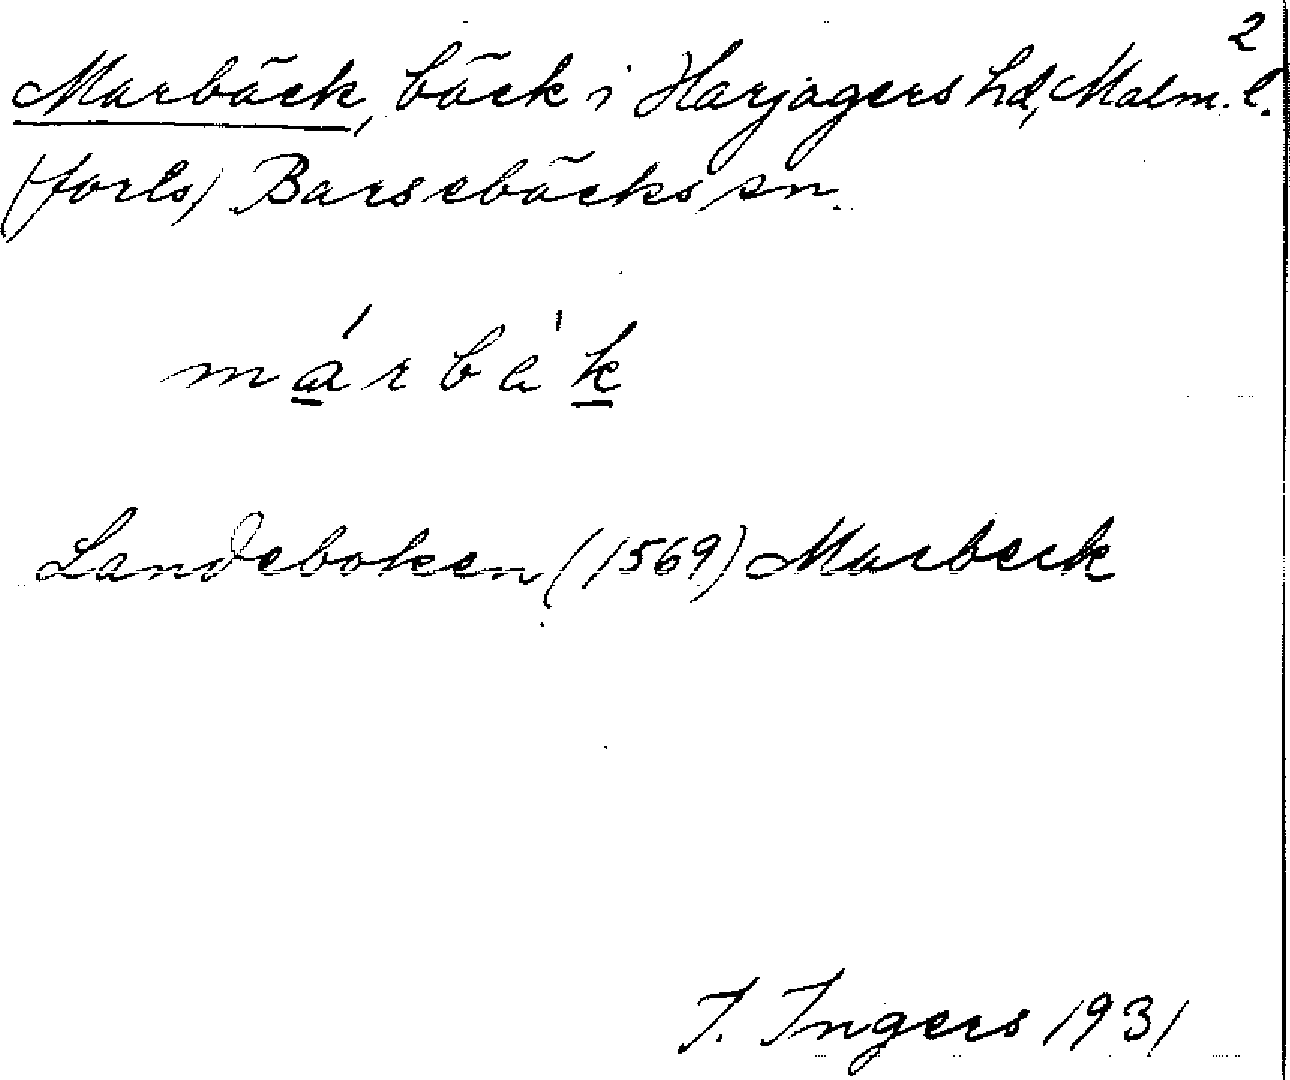 2
Marbäck, bäck i Harjagers hd, Malm. l.
(forts) Barsebäcks sn.
márbàk
Landeboken (1569) Marbeck
I. Ingers 1931